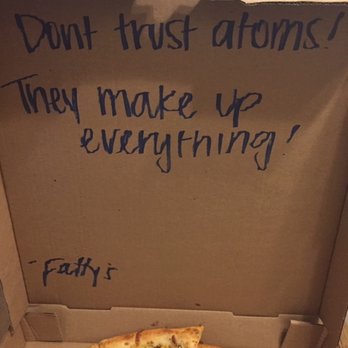 Dont trust atoms!
They make up
everything!
-Fatty's